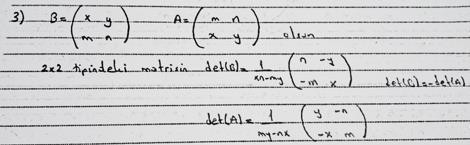 3) B = ( x y ) A = ( m n ) olsun
( m n ) ( x y )
2x2 tipindeki matrisin det(B) = 1/(xn-my) ( n -y ) det(B) = -det(A)
( -m x )
det(A) = 1/(my-nx) ( y -n )
( -x m )